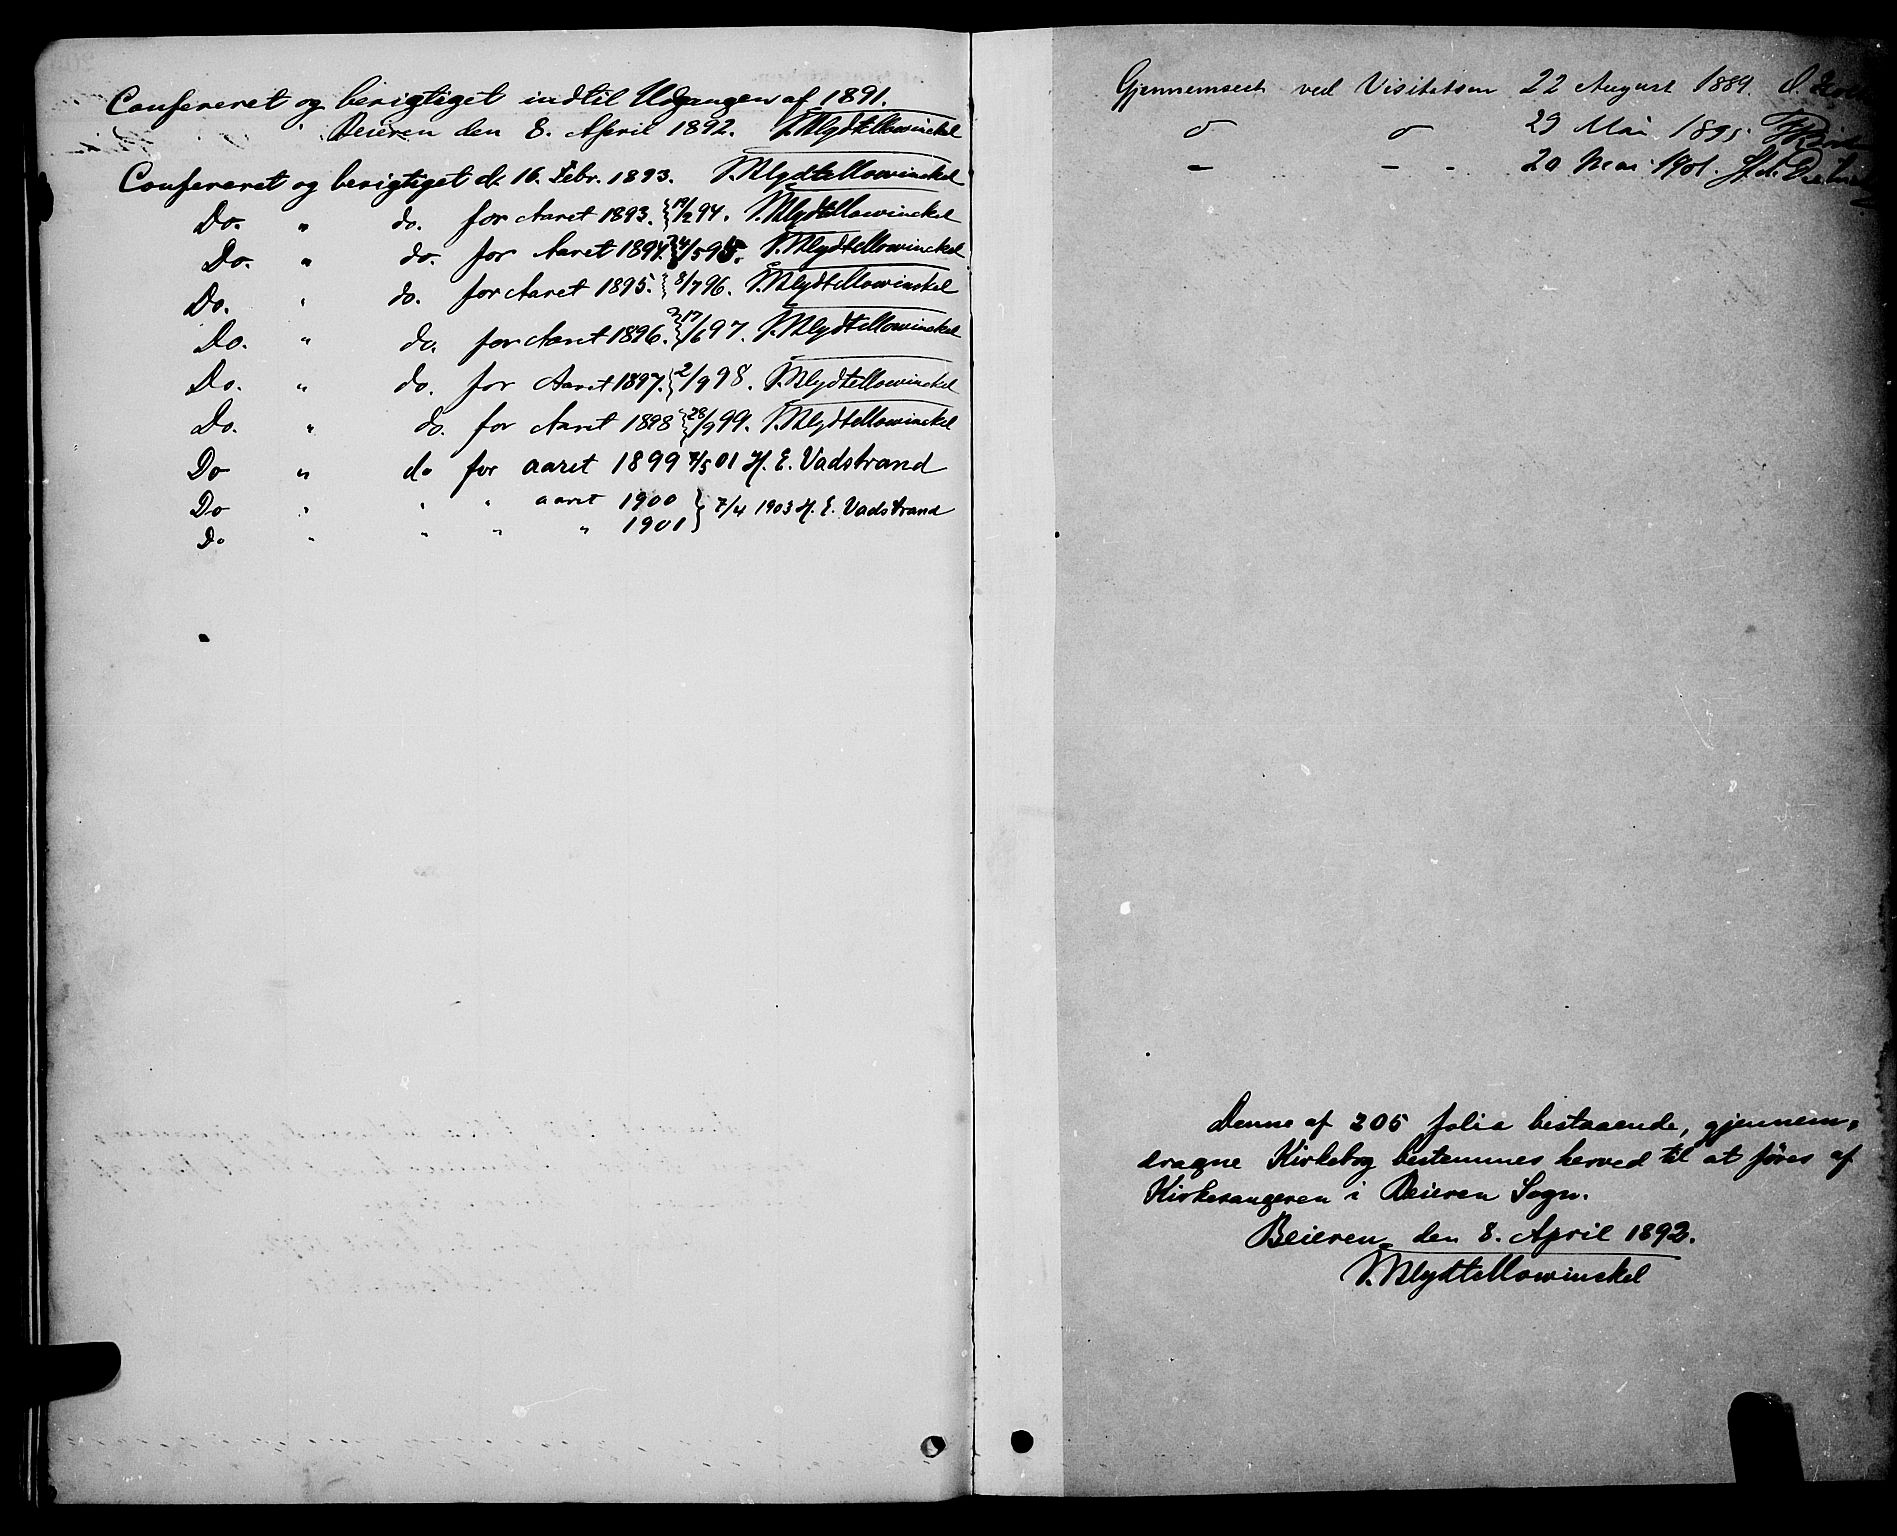 Confereret og berigtiget indtil Udgangen af 1891.
Beieren den 8. April 1892. J. Blydt Mowinckel
Confereret og berigtiget d. 16. Febr. 1893. J. Blydt Mowinckel
Do. " do. for Aaret 1893. 19/2 94. J. Blydt Mowinckel
Do. " do. for Aaret 1894. /5 95. J. Blydt Mowinckel
Do. " do. for Aaret 1895. 8/7 96. J. Blydt Mowinckel
Do. " do. for Aaret 1896. 17/6 97. J. Blydt Mowinckel
Do. " do. for Aaret 1897. 2/9 98. J. Blydt Mowinckel
Do. " do. for Aaret 1898 28/9 99. J. Blydt Mowinckel
Do " do for aaret 1899 7/5 01 H. E. Vadstrand
Do " " " aaret 1900 } 7/4 1903 H. E. Vadstrand
Do " " " " 1901
Gjennemseet ved Visitatsen 22 August 1889.
29 Mai 1895.
- - - 20 Mai 1901.
Denne af 205 folia bestaaende, gjennem-
dragne Kirkebog bestemmes herved til at føres af
Kirkesangeren i Beieren Sogn.
Beieren den 8. April 1892.
J. Blydt Mowinckel